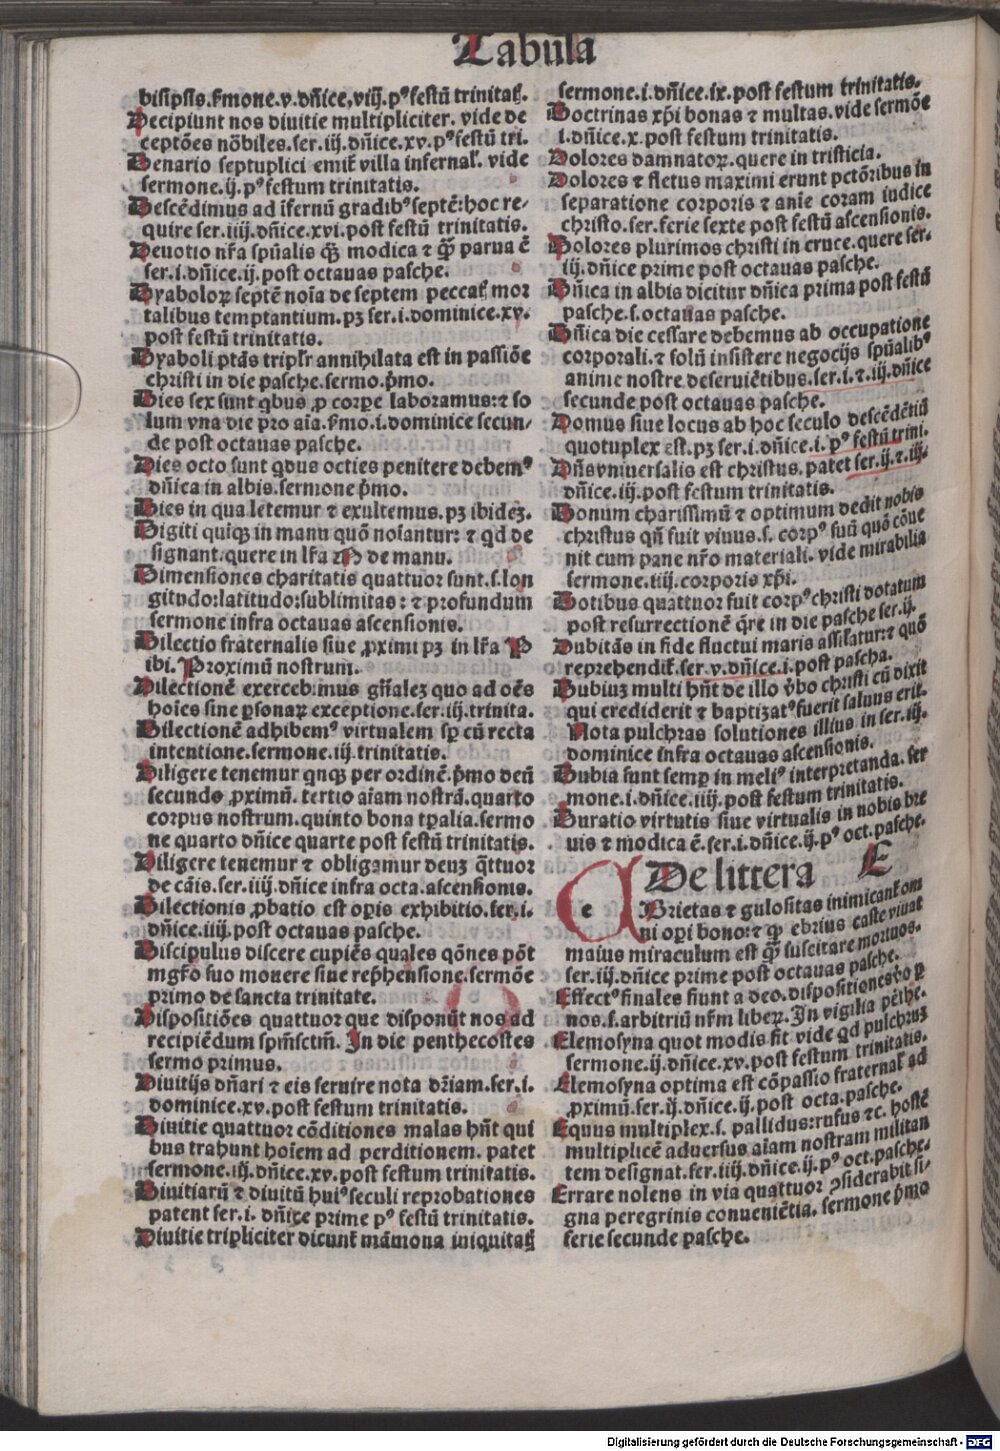 Tabula
bisipsis.ſmone.v.dñice.viij.pꝰ festū trinitatꝭ.
Decipiunt nos diuitie multipliciter. vide de
ceptōes nōbiles.ser.iij.dñice.xv.pꝰ festū tri.
Denario septuplici emit̃ villa infernal̓. vide
sermone.ij.pꝰ festum trinitatis.
Descēdimus ad īfernū gradibꝰ septē:hoc re-
quire ser.iiij.dñice.xvi.post festū trinitatis.
Deuotio nr̄a spūalis qꝫ modica ⁊ qꝫ̄ parua ē
ser.i.dñice.ij.post octauas pasche.
Dyaboloꝝ septē noīa de septem peccatꝭ mor
talibus temptantium.pꝫ ser.i.dominice.xv.
post festū trinitatis.
Dyaboli ptās tripl̓r annihilata est in passiōe
christi in die pasche.sermo.p̄mo.
Dies sex sunt qͥbus ꝓ corpꝛe laboramus:⁊ so
lum vna die pro aīa.ſmo.i.dominice secun-
de post octauas pasche.
Dies octo sunt qͥbus octies penitere debemꝰ
dñica in albis.sermone p̄mo.
Dies in qua letemur ⁊ exultemus.pꝫ ibideꝫ.
Digiti quiqꝫ in manu quō noīantur: ⁊ qͥd de
signant.quere in lr̄a M de manu.
Dimensiones charitatis quattuor sunt.s.lon
gitudo:latitudo:sublimitas: ⁊ profundum
sermone infra octauas ascensionis.
Dilectio fraternalis siue ꝓximi pꝫ in lr̄a P
ibi. Proximū nostrum.
Dilectionē exercebimus gn̄aleꝫ quo ad oēs
hoīes sine ꝑsonaꝝ exceptione.ser.iij.trinita.
Dilectionē adhibemꝰ virtualem sꝑ cū recta
intentione.sermone.iij.trinitatis.
Diligere tenemur qͥnqꝫ per ordinē.p̄mo deū
secundo ꝓximū. tertio aīam nostrā.quarto
corpus nostrum.quinto bona tꝑalia.sermo
ne quarto dñice quarte post festū trinitatis.
Diligere tenemur ⁊ obligamur deuꝫ q̄ttuor
de cāis.ser.iiij.dñice infra octa.ascensionis.
Dilectionis ꝓbatio est oꝑis exhibitio.ser.i.
dñice.iiij.post octauas pasche.
Discipulus discere cupiēs quales qōnes pōt
mgr̄o suo mouere siue rep̄hensione.sermōe
primo de sancta trinitate.
Dispositiōes quattuor que disponūt nos ad
recipiēdum spm̄sctm̄. In die penthecostes
sermo primus.
Diuitijs dñari ⁊ eis seruire nota dr̄iam.ser.i.
dominice.xv.post festum trinitatis.
Diuitie quattuor cōditiones malas hn̄t qui
bus trahunt hoīem ad perditionem. patet
sermone.iij.dñice.xv.post festum trinitatis.
Diuitiarū ⁊ diuitū huiꝰ seculi reprobationes
patent ser.i. dñice prime pꝰ festū trinitatis.
Diuitie tripliciter dicunt̃ māmona iniquitatꝭ
sermone.i.dñice.ix.post festum trinitatis.
Doctrinas xp̄i bonas ⁊ multas.vide sermōe
i.dñice.x.post festum trinitatis.
Dolores damnatoꝝ.quere in tristicia.
Dolores ⁊ fletus maximi erunt pctōribus in
separatione corporis ⁊ anīe coram iudice
christo.ser.ferie sexte post festū ascensionis.
Dolores plurimos christi in cruce.quere ser.
iij.dñice prime post octauas pasche.
Dñica in albis dicitur dñica prima post festū
pasche.s.octauas pasche.
Dñica die cessare debemus ab occupatione
corporali.⁊ solū insistere negocijs spūalibꝰ
anime nostre deseruiētibus.ser.i.⁊.iij.dñice
secunde post octauas pasche.
Domus siue locus ab hoc seculo descēdētiū
quotuplex est.pꝫ ser.i.dñice.i.pꝰ festū trini.
Dñs vniuersalis est christus.patet ser.ij.⁊.iij.
dñice.iij.post festum trinitatis.
Donum charissimū ⁊ optimum dedit nobis
christus qn̄ fuit viuus.s.corpꝰ suū quō cōue
nit cum pane nr̄o materiali.vide mirabilia
sermone.iiij.corporis xp̄i.
Dotibus quattuor fuit corpꝰ christi dotatum
post resurrectionē q̄re in die pasche ser.ij.
Dubitās in fide fluctui maris assil̓atur:⁊ quō
reprehendit̃.ser.v.dñice.i.post pascha.
Dubiuꝫ multi hn̄t de illo v̓bo christi cū dixit
qui crediderit ⁊ baptizatꝰ fuerit saluus erit.
Nota pulchras solutiones illius in ser.iij.
dominice infra octauas ascensionis.
Dubia sunt semꝑ in meliꝰ interpretanda.ser
mone.i.dñice.iiij.post festum trinitatis.
Duratio virtutis siue virtualis in nobis bre
uis ⁊ modica ē.ser.i.dñice.ij.pꝰ oct.pasche.
De littera E
e Brietas ⁊ gulositas inimicant̃ om
ni oꝑi bono:⁊ qꝫ ebrius caste viuat
maius miraculum est qꝫ̄ suscitare mortuos.
ser.iij.dñice prime post octauas pasche.
Effectꝰ finales fiunt a deo.dispositiones v̓o ꝑ
nos.s.arbitriū nr̄m liberꝝ.In vigilia pēthe.
Elemosyna quot modis fit vide qͥd pulchruꝫ
sermone.ij.dñice.xv.post festum trinitatis.
Elemosyna optima est cōpassio fraternal̓ ad
ꝓximū.ser.ij.dñice.ij.post octa.pasche.
Equus multiplex.s. pallidus:rufus ⁊c. hostē
multiplicē aduersus aīam nostram militan
tem designat.ser.iiij.dñice.ij.pꝰ oct.pasche.
Errare nolens in via quattuor ꝯsiderabit si-
gna peregrinis conueniētia. sermone p̄mo
ferie secunde pasche.
Digitalisierung gefördert durch die Deutsche Forschungsgemeinschaft - DFG